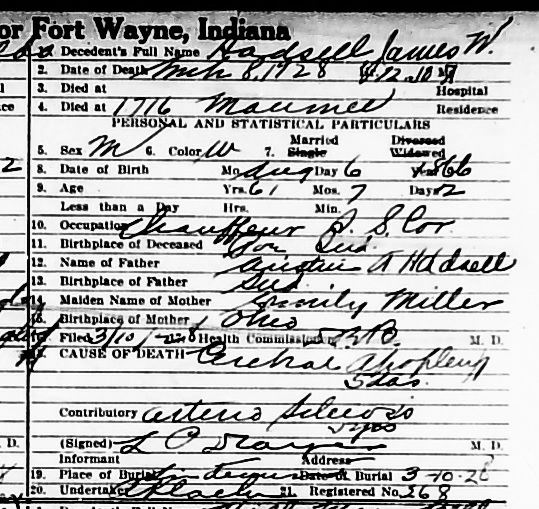 or Fort Wayne, Indiana
1. Decedent's Full Name Hadsell James W.
2. Date of Death Mch 8, 1928
3. Died at Hospital
4. Died at 1716 Maumee Residence
PERSONAL AND STATISTICAL PARTICULARS
5. Sex M 6. Color W 7. Married Single Divorced Widowed
8. Date of Birth Mo. Aug Day 6 Year 1866
9. Age Yrs. 61 Mos. 7 Days 2
Less than a Day Hrs. Min.
10. Occupation Chauffeur
11. Birthplace of Deceased Ind.
12. Name of Father Austin A Hadsell
13. Birthplace of Father Ind
14. Maiden Name of Mother Emily Miller
15. Birthplace of Mother Ohio
Filed 3/10/28 Health Commissioner M. D.
CAUSE OF DEATH Cerebral Apoplexy
5 das.
Contributory Arterio
(Signed) M. D.
Informant Address
19. Place of Burial Date of Burial 3-10-28
20. Undertaker 21. Registered No. 268